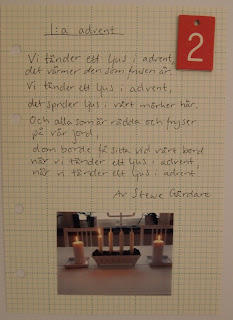 1:a advent
2
Vi tänder ett ljus i advent,
det värmer den som frusen är.
Vi tänder ett ljus i advent,
det sprider ljus i vårt mörker här.
Och alla som är rädda och fryser
på vår jord,
dom borde få sitta vid vårt bord
när vi tänder ett ljus i advent,
när vi tänder ett ljus i advent
Av Stewe Gårdare